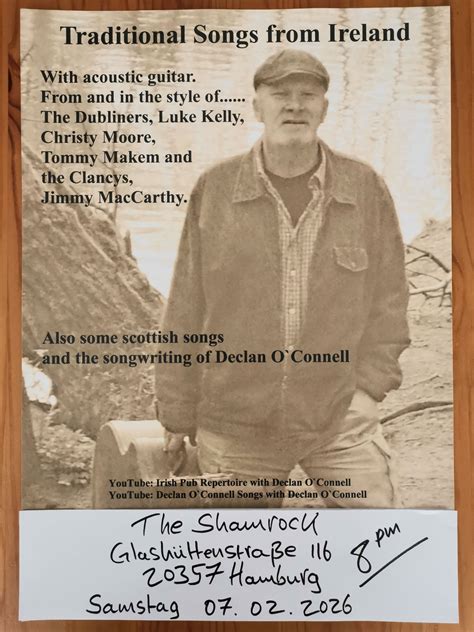 Traditional Songs from Ireland
With acoustic guitar.
From and in the style of......
The Dubliners, Luke Kelly,
Christy Moore,
Tommy Makem and
the Clancys,
Jimmy MacCarthy.
Also some scottish songs
and the songwriting of Declan O`Connell
YouTube: Irish Pub Repertoire with Declan O`Connell
YouTube: Declan O`Connell Songs with Declan O`Connell
The Shamrock
Glashüttenstraße 116
8 pm
20357 Hamburg
Samstag 07. 02. 2026